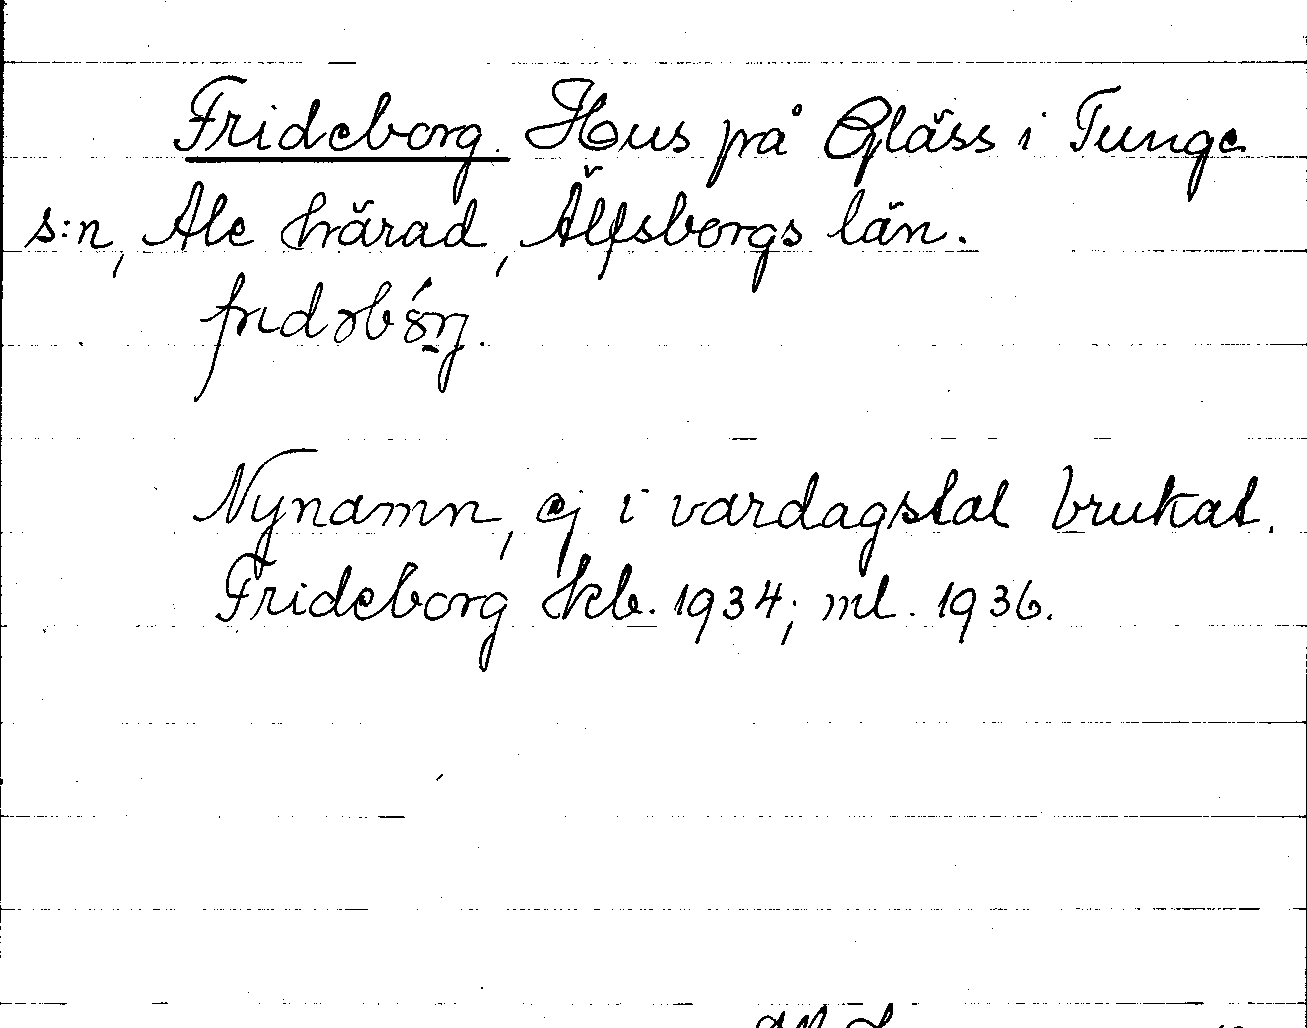 Frideborg. Hus på Gläss i Tunge
s:n, Ale härad, Älfsborgs län.
Nynamn, ej i vardagstal brukat.
Frideborg hkb. 1934; ml. 1936.